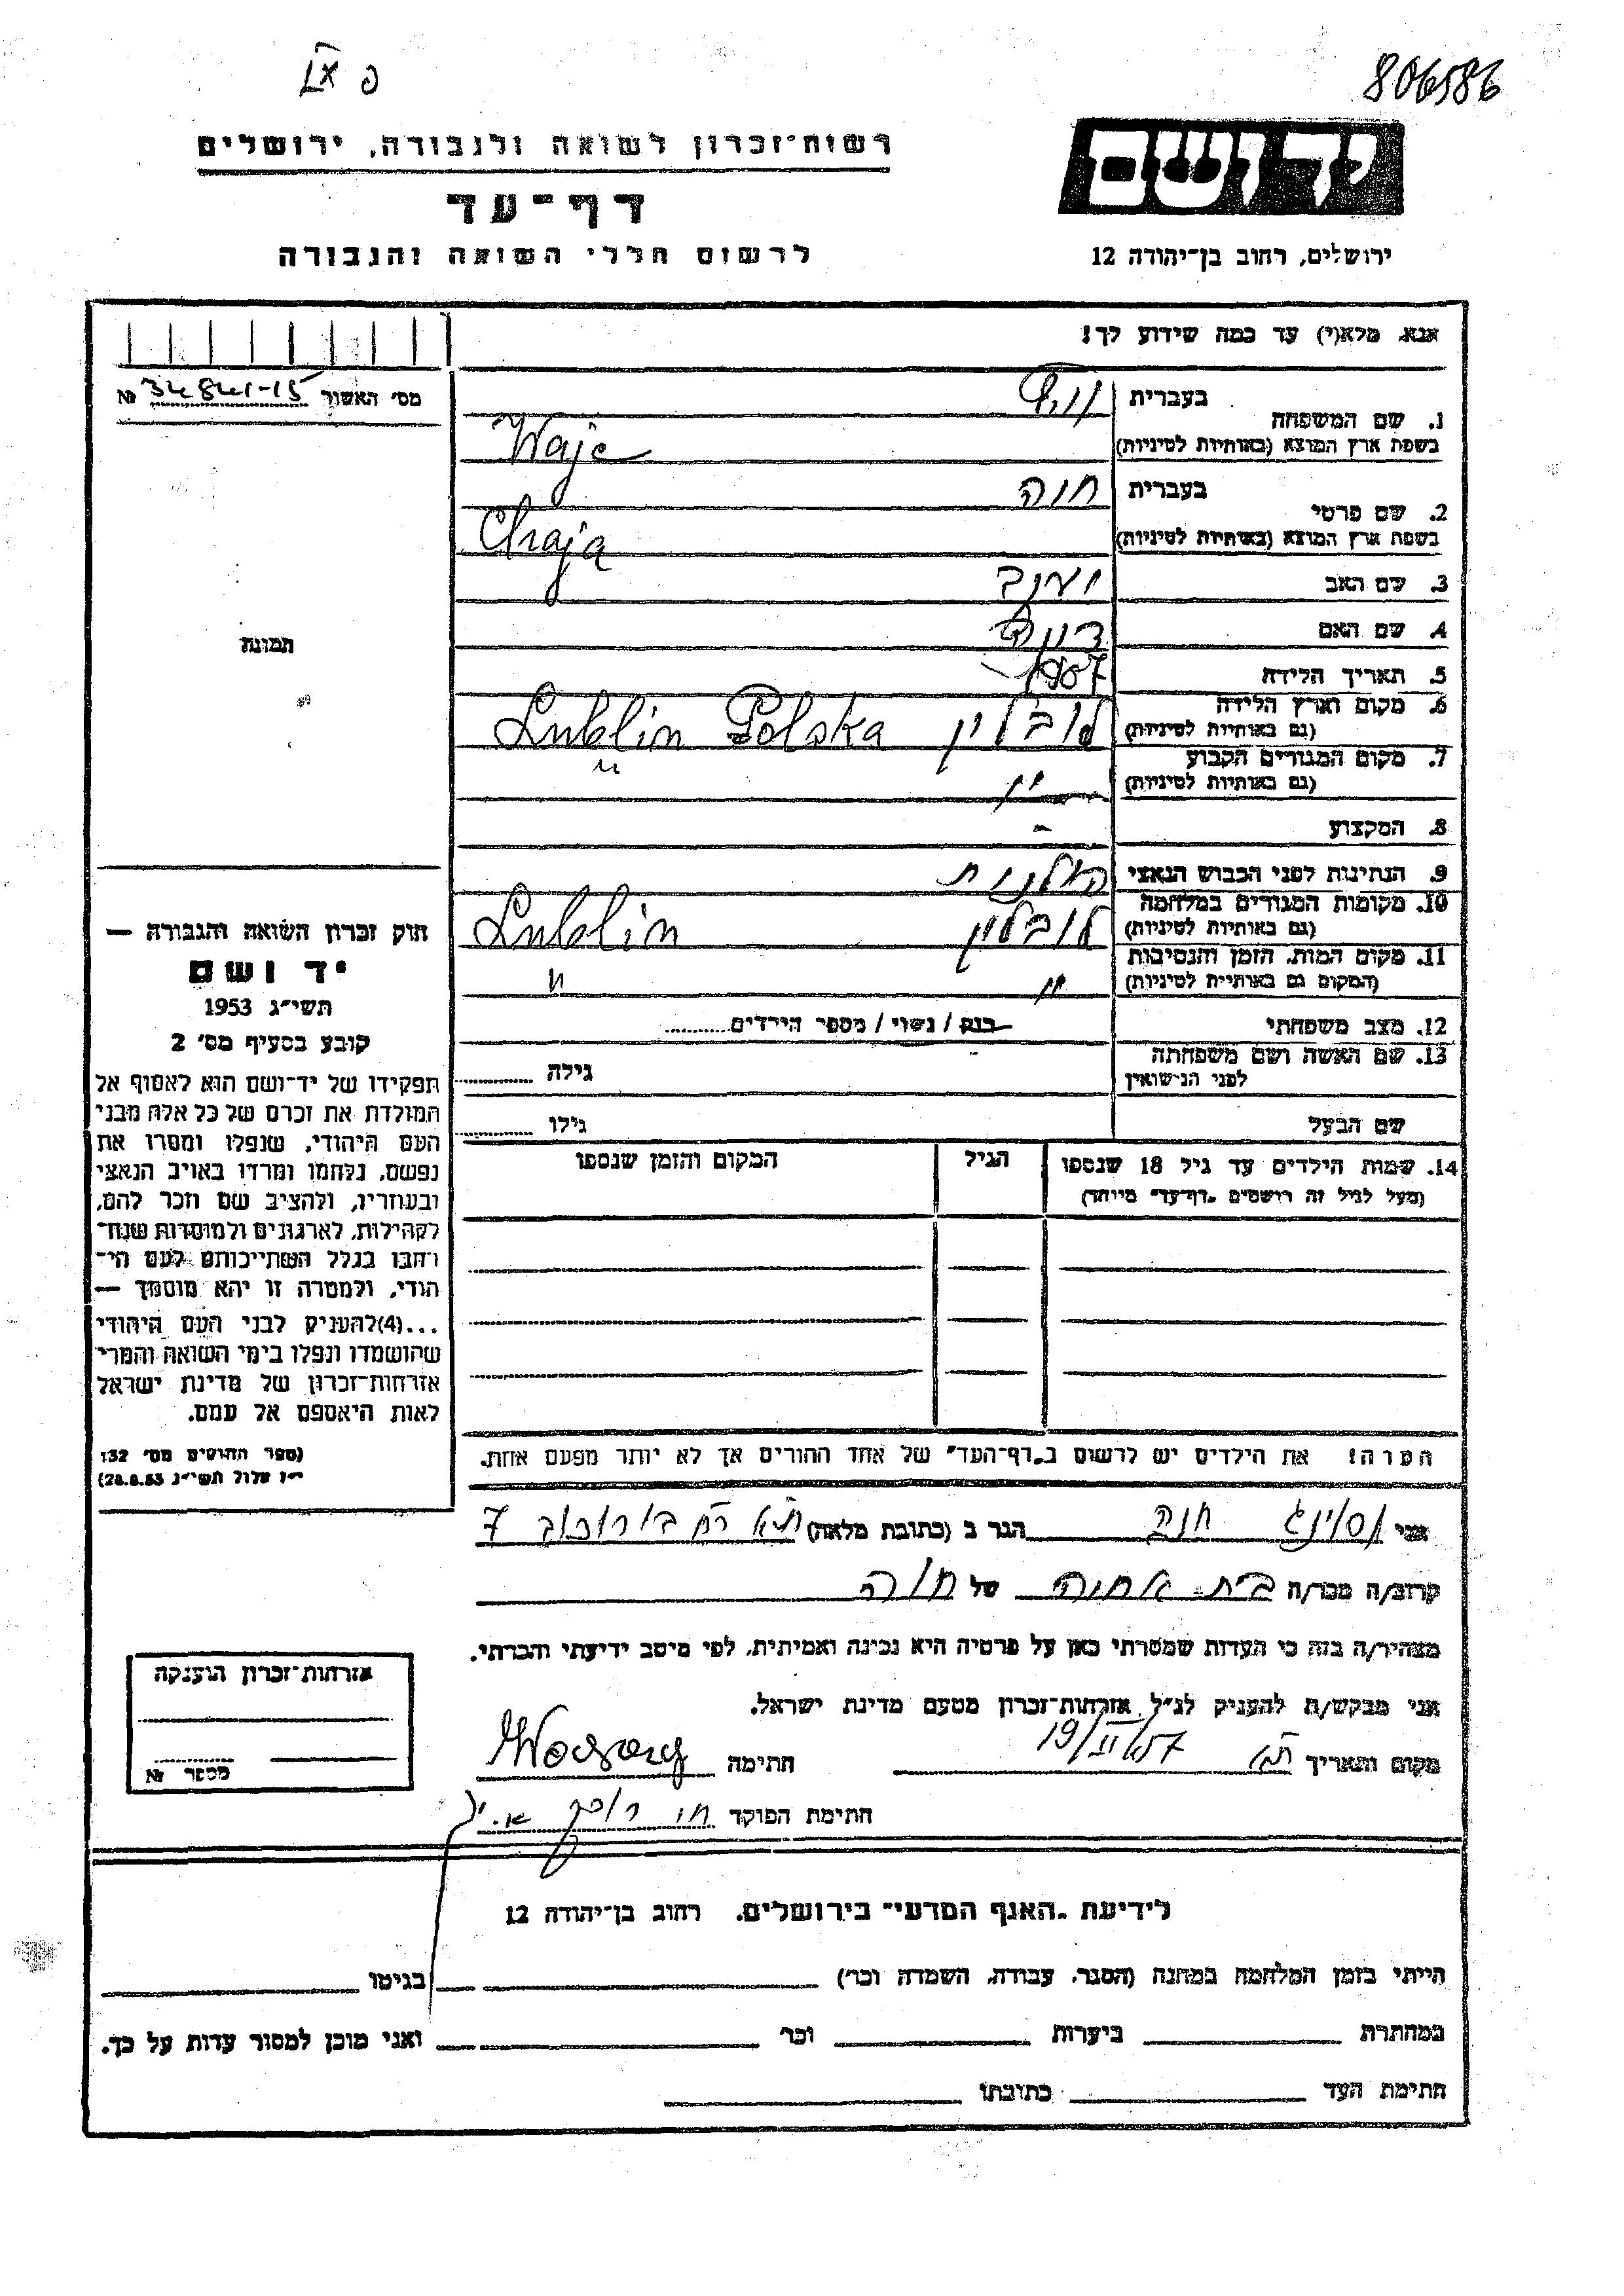 806586
רשות־זכרון לשואה ולגבורה, ירושלים
יד ושם
דף־עד
לרשום חללי השואה והגבורה
ירושלים, רחוב בן־יהודה 12
אנא, מלא(י) עד כמה שידוע לך!
מס' האשור 34841-15 №
1. שם המשפחה
בעברית
בשפת ארץ המוצא (באותיות לטיניות) Waje
2. שם פרטי
בעברית חיה
בשפת ארץ המוצא (באותיות לטיניות) Chaja
3. שם האב יעקב
4. שם האם
5. תאריך הלידה 1907
6. מקום וארץ הלידה (גם באותיות לטיניות) לובלין Lublin Polska
7. מקום המגורים הקבוע (גם באותיות לטיניות) " "
8. המקצוע -
9. הנתינות לפני הכבוש הנאצי פולנית
10. מקומות המגורים במלחמה (גם באותיות לטיניות) לובלין Lublin
11. מקום המות, הזמן והנסיבות (המקום גם באותיות לטיניות) " "
12. מצב משפחתי רוק / נשוי / מספר הילדים
13. שם האשה ושם משפחתה לפני הנישואין גילה
שם הבעל גילו
14. שמות הילדים עד גיל 18 שנספו הגיל המקום והזמן שנספו
(מעל לגיל זה רושמים "דף־עד" מיוחד)
הערה! את הילדים יש לרשום ב"דף־העד" של אחד ההורים אך לא יותר מפעם אחת.
תמונה
חוק זכרון השואה והגבורה —
יד ושם
תשי"ג 1953
קובע בסעיף מס' 2
תפקידו של יד־ושם הוא לאסוף אל
המולדת את זכרם של כל אלה מבני
העם היהודי, שנפלו ומסרו את
נפשם, נלחמו ומרדו באויב הנאצי
ובעוזריו, ולהציב שם וזכר להם,
לקהילות, לארגונים ולמוסדות שנח־
רבו בגלל השתייכותם לעם הי־
הודי, ולמטרה זו יהא מוסמך —
...(4)להעניק לבני העם היהודי
שהושמדו ונפלו בימי השואה והמרי
אזרחות־זכרון של מדינת ישראל
לאות היאספם אל עמם.
(ספר החוקים מס' 132
י"ז אלול תשי"ג 28.8.53)
אני חנה הגר ב (כתובת מלאה) ת"א רח' בורוכוב 7
קרוב/ה מכר/ה בת-אחיה של חיה
מצהיר/ה בזה כי העדות שמסרתי כאן על פרטיה היא נכונה ואמיתית, לפי מיטב ידיעתי והכרתי.
אני מבקש/ת להעניק לנ"ל אזרחות־זכרון מטעם מדינת ישראל.
מקום ותאריך ת"א 19/II/57 חתימה
חתימת הפוקד
אזרחות־זכרון הוענקה
מספר №
לידיעת "האגף המדעי" בירושלים, רחוב בן־יהודה 12
הייתי בזמן המלחמה במחנה (הסגר, עבודה, השמדה וכו') בגיטו
במחתרת ביערות וכו' ואני מוכן למסור עדות על כך.
חתימת העד כתובתו